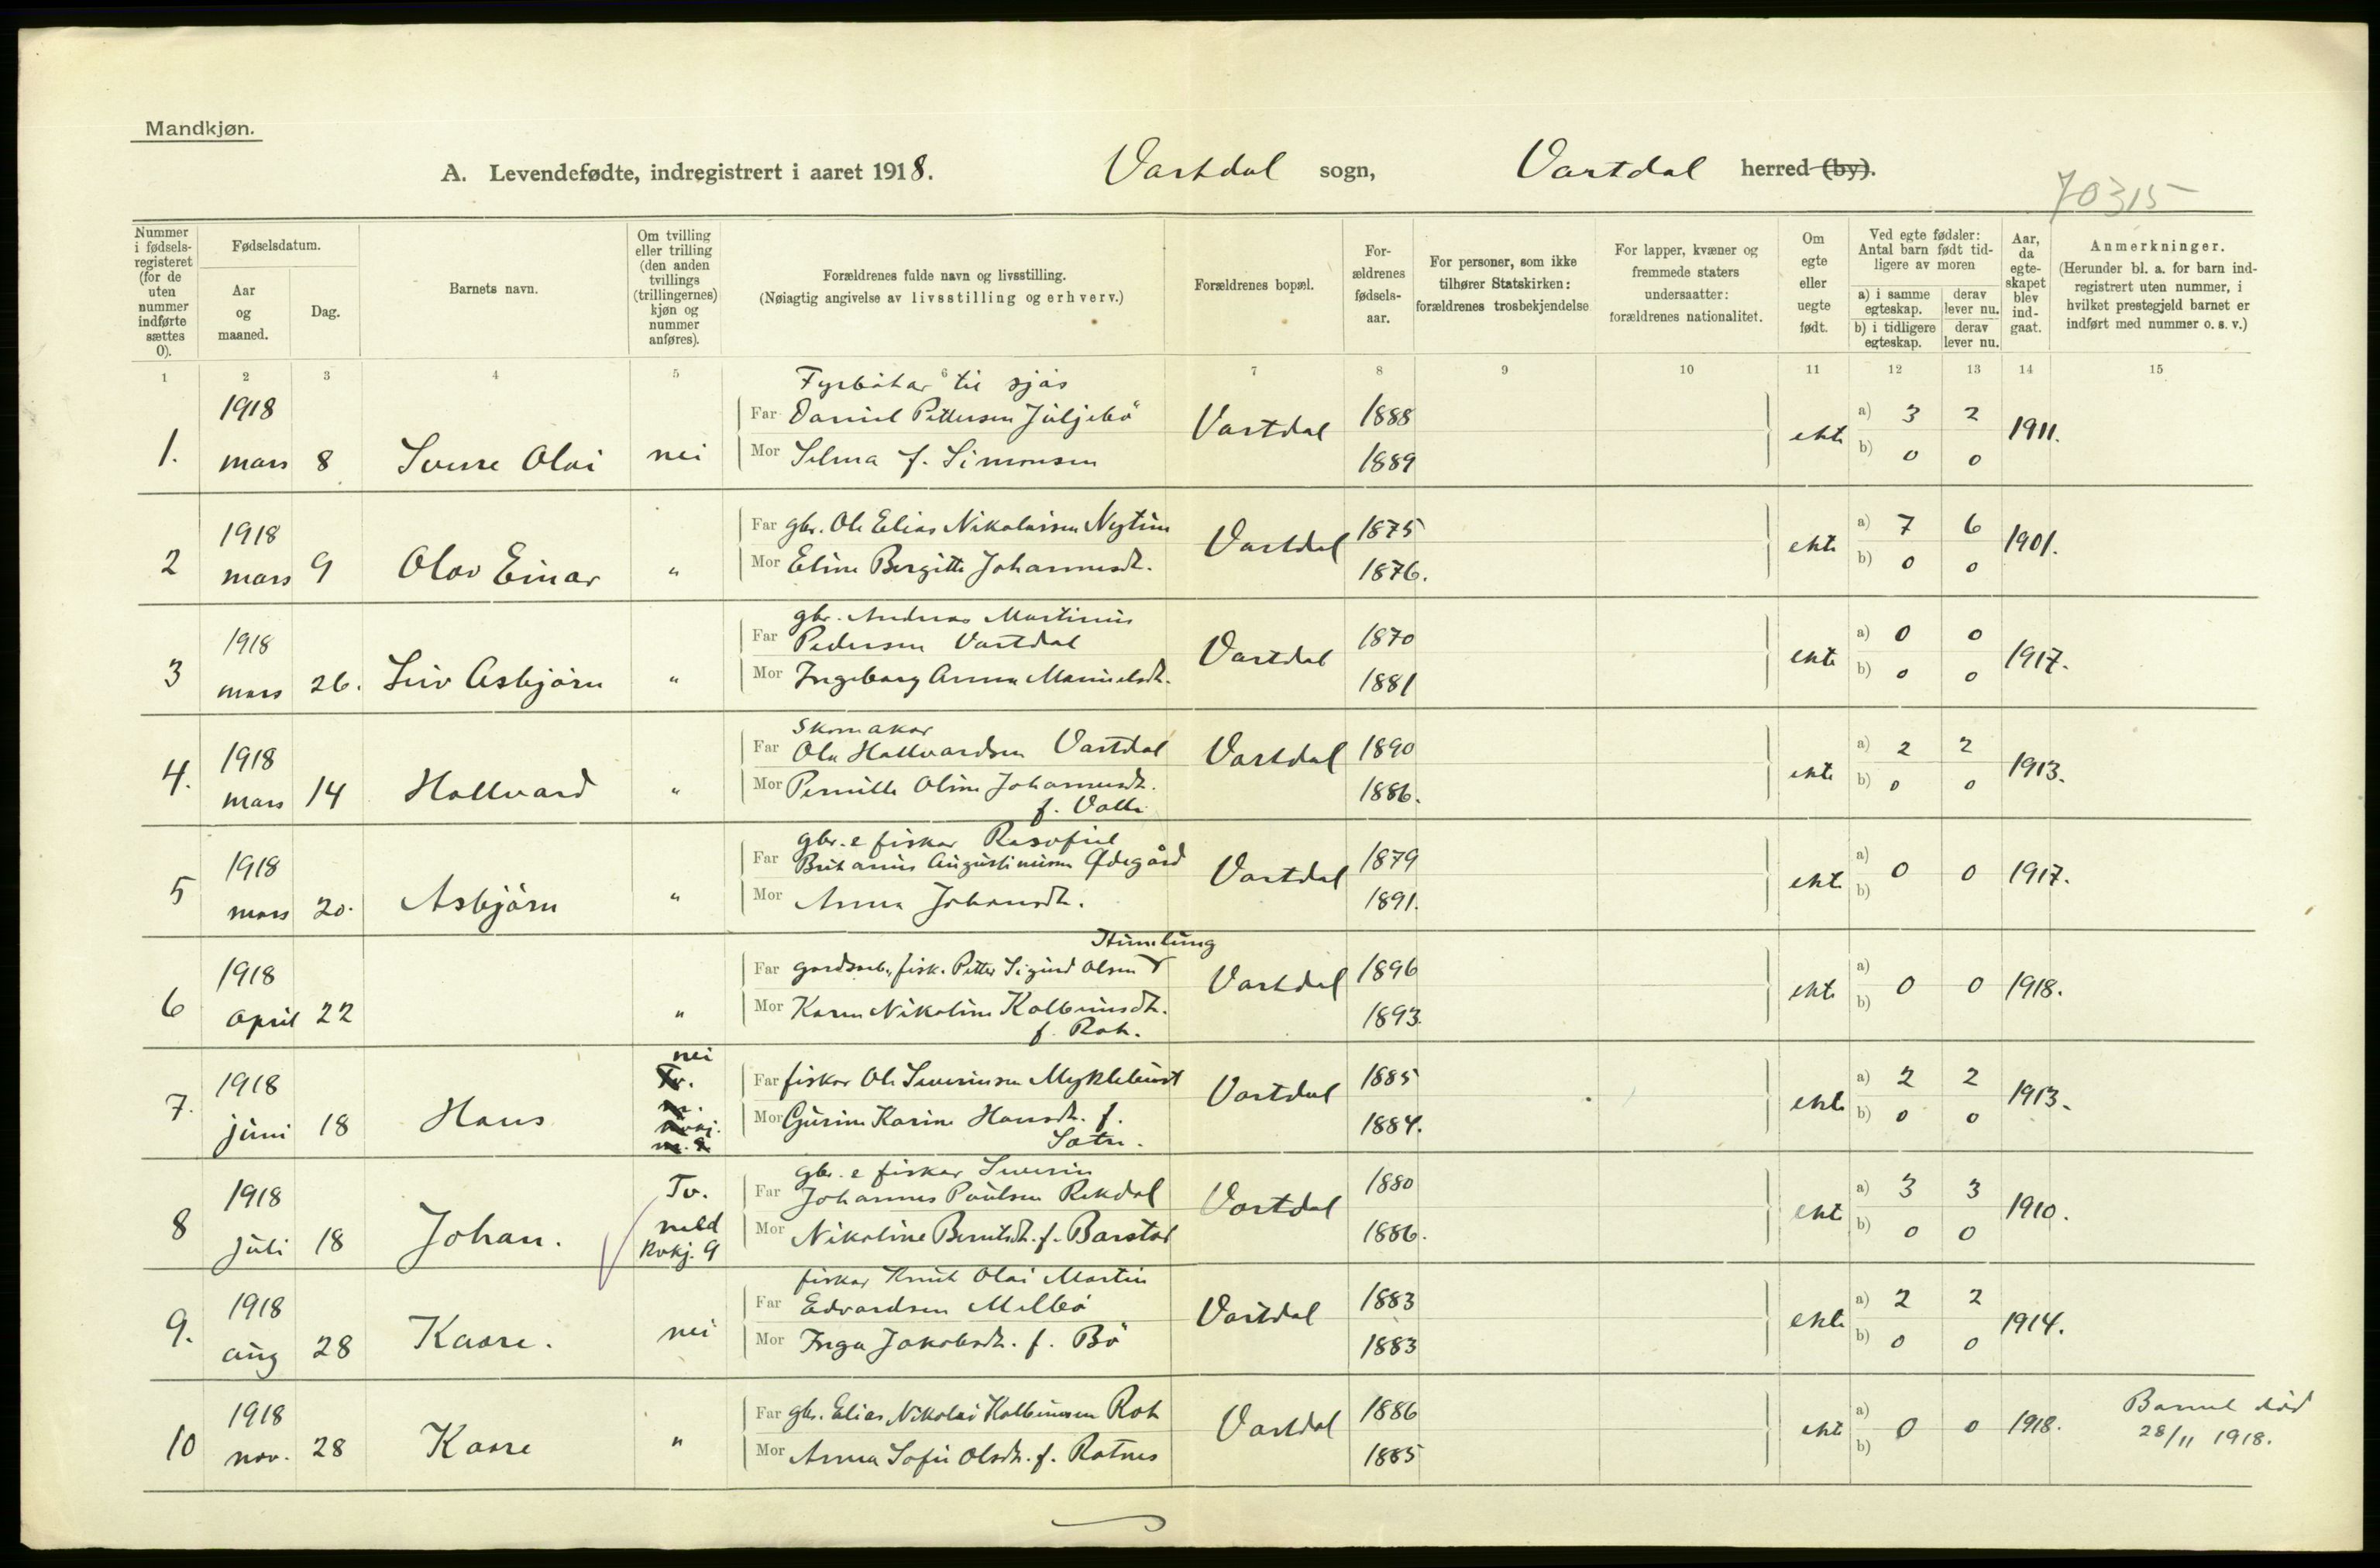 Mandkjøn.
A. Levendefødte, indregistrert i aaret 1918. Vartdal sogn, Vartdal herred (by).
70315
Nummer i fødsels-registeret (for de uten nummer indførte sættes 0).
Fødselsdatum.
Aar og maaned.
Dag.
Barnets navn.
Om tvilling eller trilling (den anden tvillings (trillingernes) kjøn og nummer anføres).
Forældrenes fulde navn og livsstilling.
(Nøiagtig angivelse av livsstilling og erhverv.)
Forældrenes bopæl.
For-ældrenes fødsels-aar.
For personer, som ikke tilhører Statskirken: forældrenes trosbekjendelse
For lapper, kvæner og fremmede staters undersaatter: forældrenes nationalitet.
Om egte eller uegte født.
Ved egte fødsler: Antal barn født tid-ligere av moren
a) i samme egteskap.
derav lever nu.
b) i tidligere egteskap.
derav lever nu.
Aar, da egte-skapet blev ind-gaat.
Anmerkninger.
(Herunder bl. a. for barn ind-registrert uten nummer, i hvilket prestegjeld barnet er indført med nummer o. s. v.)
1 2 3 4 5 6 7 8 9 10 11 12 13 14 15
Fyrbøtar til sjøs
1918 Far Daniel Pettersen Juljebø Vartdal 1888 a) 3 2
1. mars 8 Sverre Olai nei Mor Selma f. Simonsen 1889 ekte b) 0 0 1911.
1918 Far gbr. Ole Elias Nikolaisen Nytun Vartdal 1875 a) 7 6
2 mars 9 Olav Einar " Mor Eline Bergitte Johannesdt. 1876. ekte b) 0 0 1901.
gbr. Andreas Martinus
1918 Far Pedersen Vartdal Vartdal 1870 a) 0 0
3 mars 26. Liv Asbjørn " Mor Ingeborg Anna Manuelsdt. 1881 ekte b) 0 0 1917.
Skomakar
1918 Far Ola Hallvardsen Vartdal Vartdal 1890 a) 2 2
4. mars 14 Hallvard " Mor Pernille Oline Johannesdt. 1886. ekte b) 0 0 1913.
f. Valle
gbr. e fiskar Rasofiel
1918 Far Britanus Augustinusen Ødegård Vartdal 1879 a)
5 mars 20. Asbjørn " Mor Anna Johansdt. 1891. ekte b) 0 0 1917.
Humlung
1918 Far gardsarb., fisk. Petter Sigurd Olsen Vartdal 1896 a)
6 april 22 " Mor Karen Nikoline Kolbeinsdt. 1893. ekte b) 0 0 1918.
f. Rot.
nei
1918 Tv. Far fiskar Ole Severinsen Myklebust Vartdal 1885 a) 2 2
7. juni 18 Hans Mor Gurine Karine Hansdt. f. 1884. ekte b) 0 0 1913.
Sætre.
gbr. e fiskar Severin
1918 Tv. Far Johannes Paulsen Rekdal Vartdal 1880 a) 3 3
8 juli 18 Johan. med kvkj. 9 Mor Nikoline Berntsdt. f. Barstad 1886. ekte b) 0 0 1910.
fiskar Knut Olai Martin
1918 Far Edvardsen Melbø Vartdal 1883 a) 2 2
9. aug 28 Kaare. nei Mor Inga Jakobsdt. f. Bö 1883 ekte b) 0 0 1914.
1918 Far gbr. Elias Nikolai Kolbeinsen Rot Vartdal 1886 a) Barnet död
10 nov. 28 Kaare " Mor Anna Sofie Olsdt. f. Rotnes 1885 ekte b) 0 0 1918. 28/11 1918.